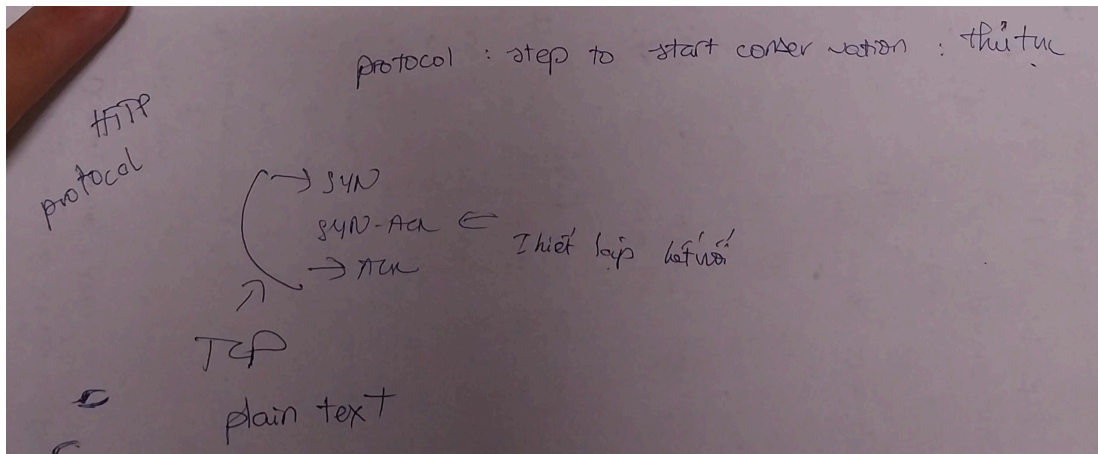 protocol : step to start conser vation : thủ tục
HTTP
protocol
→ SYN
SYN-ACK ⇐
Thiết lập kết nối
→ ACK
TCP
plain text